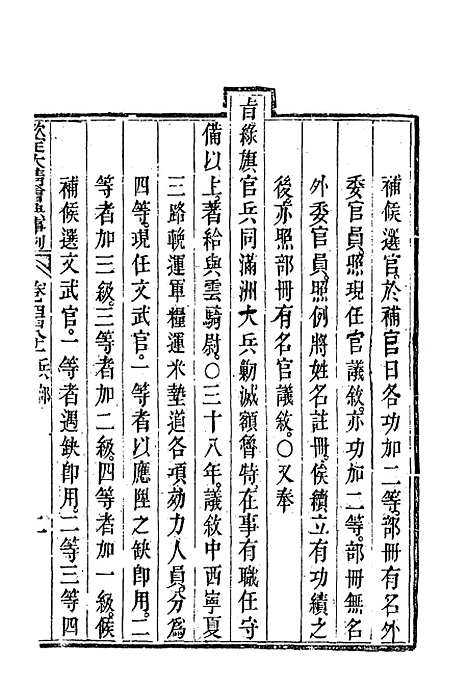 補候選官於補官日各功加二等部册有名外
委官員照現任官議敘亦功加二等部册無名
外委官員照例將姓名註册俟續立有功績之
後亦照部册有名官議敘〇又奉
旨綠旗官兵同滿洲大兵勦滅額魯特在事有職任守
備以上著給與雲騎尉〇三十八年議敘中西寧夏
三路輓運軍糧運米墊道各項効力人員分為
四等現任文武官一等者以應陞之缺卽用二
等者加三級三等者加二級四等者加一級候
補候選文武官一等者遇缺卽用二等三等四
欽定大清會典事例
兵部